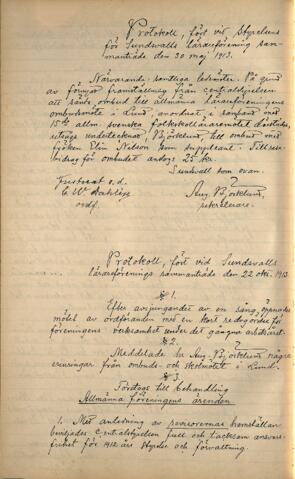 Protokoll, fört vid Styrelsens
för Sundsvalls lärareförening sam-
manträde den 30 maj 1913.
Närvarande samtliga ledamöter. På grund
av förnyad framställning från centralstyrelsen
att sända ombud till allmänna lärareföreningens
ombudsmöte i Lund, anordnat i samband med
15:de allm. svenska folkskolläraremötet därstädes,
utsågs undertecknad, Björklund, till ombud med
fröken Elin Nelson som suppleant. Till rese-
bidrag för ombudet anslogs 25 kr.
Sundsvall som ovan.
Justerat e.d.
C W Dahlén
ordf.
Aug. Björklund,
sekreterare.
Protokoll, fört vid Sundsvalls
lärareförenings sammanträde den 22 okt. 1913.
§ 1.
Efter avsjungandet av en sång, öppnades
mötet av ordföranden med en kort redogörelse för
föreningens verksamhet under det gångna arbetsåret.
§ 2.
Meddelade hr Aug. Björklund några
erinringar från ombuds- och skolmötet i Lund.
§ 3.
Företogs till behandling
Allmänna föreningens ärenden
1. Med anledning av revisorernas hemställan
beviljades centralstyrelsen full och tacksam ansvars-
frihet för 1912 års styrelse och förvaltning.